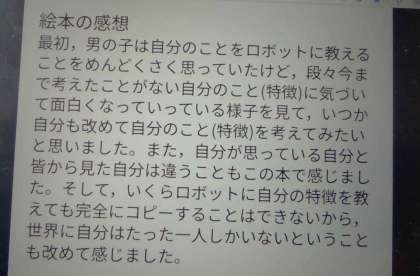 絵本の感想
最初，男の子は自分のことをロボットに教える
ことをめんどくさく思っていたけど，段々今ま
で考えたことがない自分のこと(特徴)に気づい
て面白くなっていっている様子を見て，いつか
自分も改めて自分のこと(特徴)を考えてみたい
と思いました。また，自分が思っている自分と
皆から見た自分は違うこともこの本で感じまし
た。そして，いくらロボットに自分の特徴を教
えても完全にコピーすることはできないから，
世界に自分はたった一人しかいないということ
も改めて感じました。